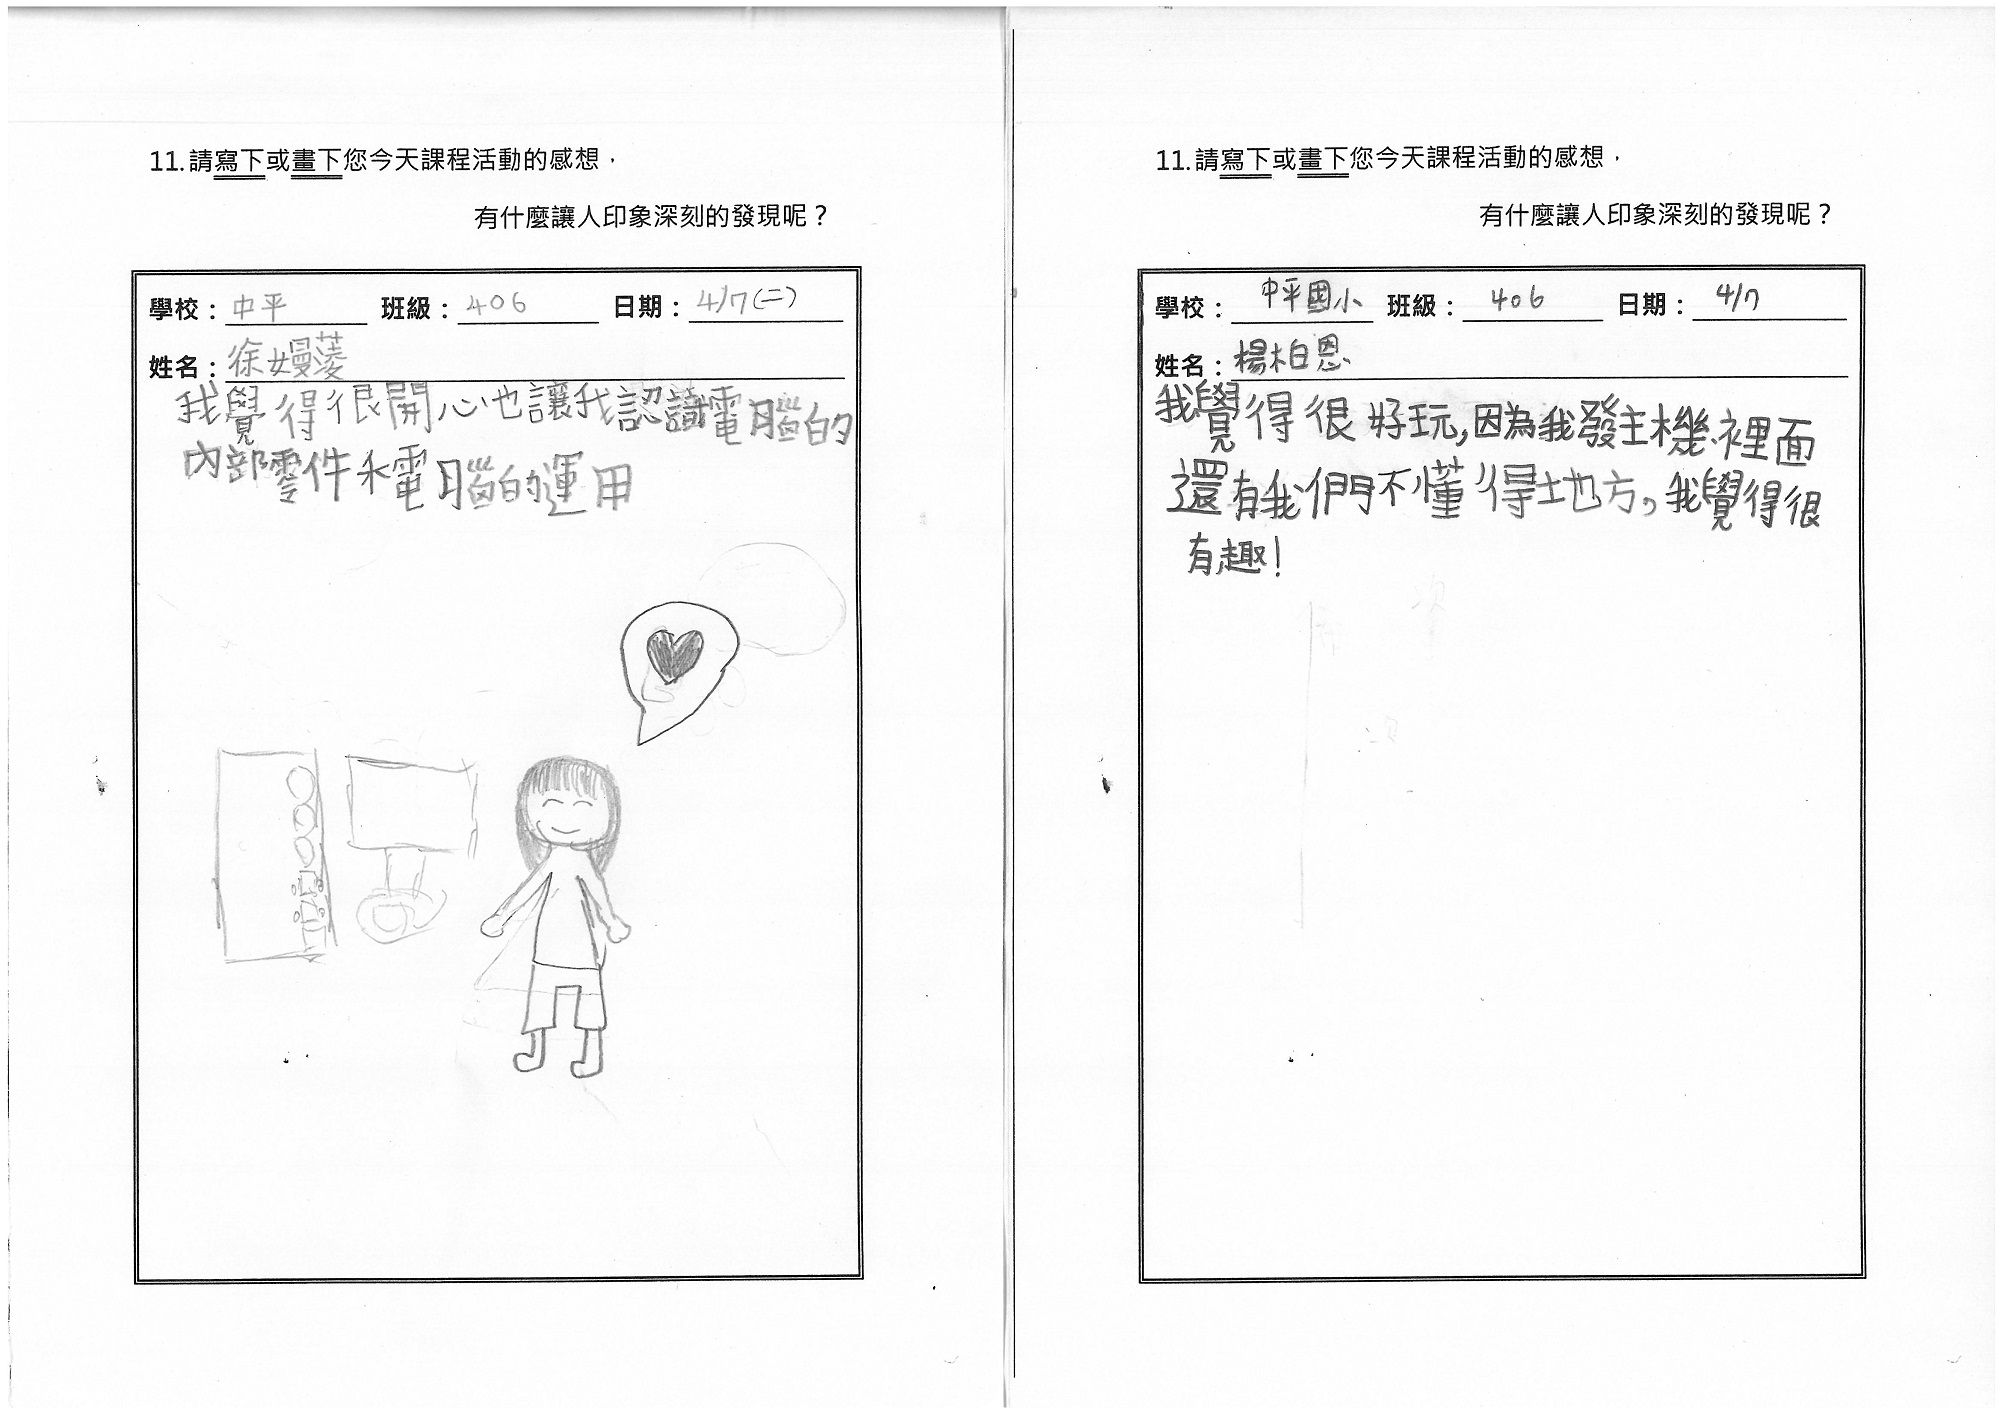 11.請寫下或畫下您今天課程活動的感想，
有什麼讓人印象深刻的發現呢？
學校：中平 班級：406 日期：4/7(二)
姓名：徐嫚蓤
我覺得很開心也讓我認識電腦的
內部零件和電腦的運用
11.請寫下或畫下您今天課程活動的感想，
有什麼讓人印象深刻的發現呢？
學校：中平國小 班級：406 日期：4/7
姓名：楊柏恩
我覺得很好玩,因為我發主機裡面
還有我們不懂得地方,我覺得很
有趣!